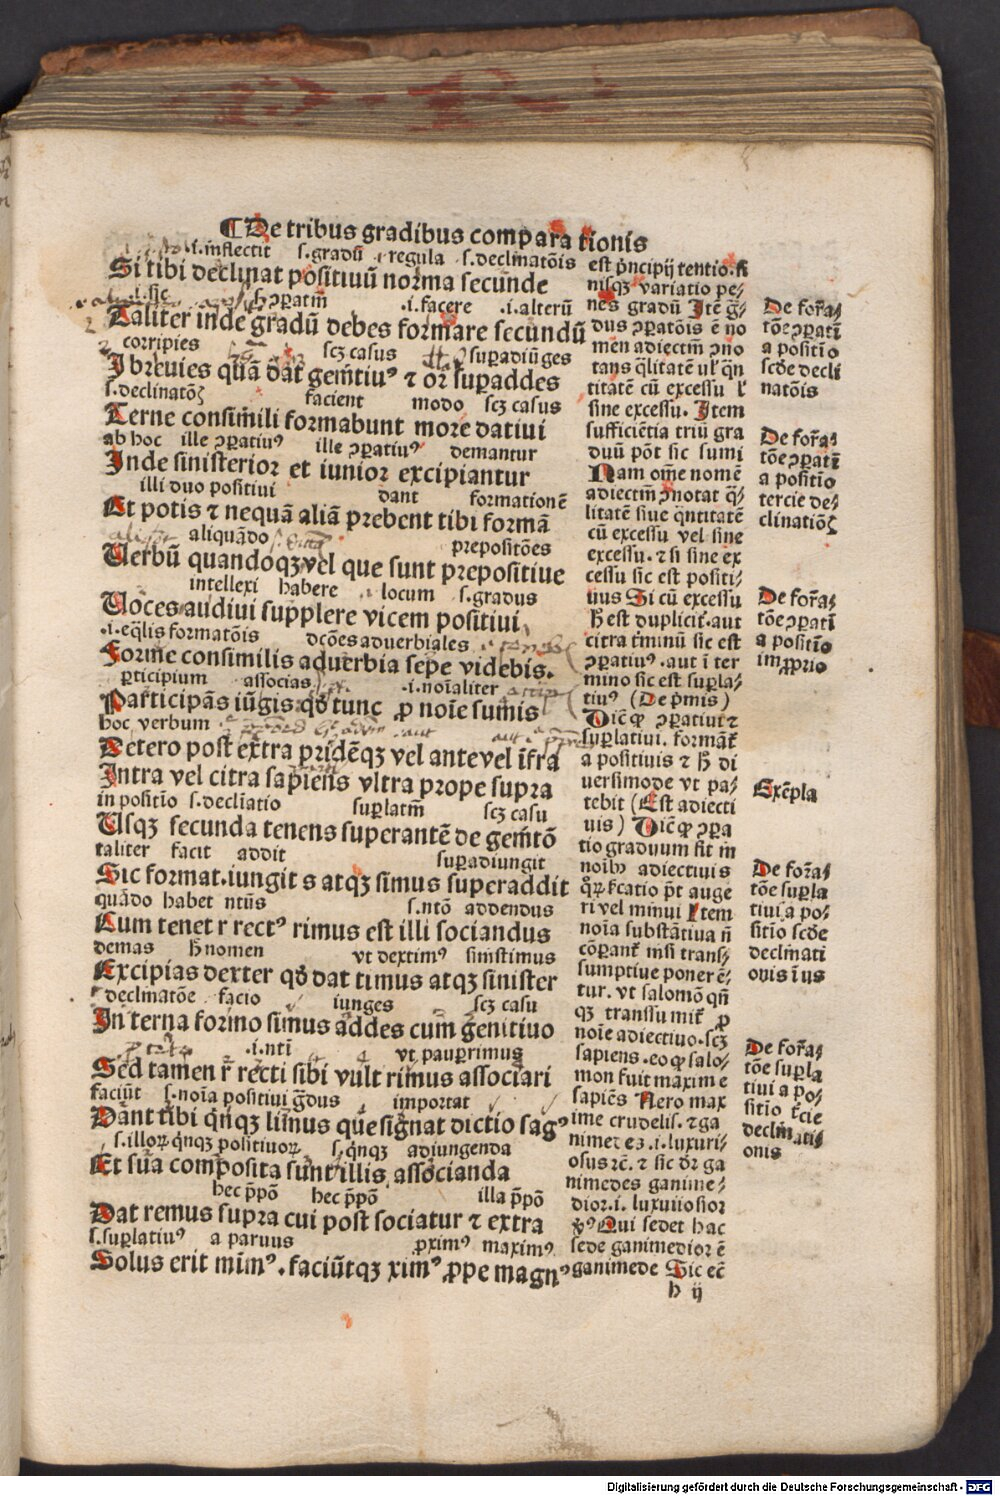 ¶ De tribus gradibus compara tionis
.i. inflectit s. gradū regula s. declinatōis
Si tibi declinat positiuū norma secunde
.i. sic ꝯparatiū .i. facere .i. alterū
Taliter inde gradū debes formare secundū
corripies scꝫ casus supadiūges
I breuies quā dat gem̄tiuꝰ ⁊ or̄ supaddes
s. declinatōꝭ facient modo scꝫ casus
Terne consimili formabunt more datiui
ab hoc ille ꝯparatiuꝰ ille ꝯparatiuꝰ demantur
Inde sinisterior et iunior excipiantur
illi duo positiui dant formationē
At potis ⁊ nequā aliā prebent tibi formā
aliquādo prepositōes
Uerbū quandoqꝫ vel que sunt prepositiue
intellexi habere locum s. gradus
Uoces audiui supplere vicem positiui
.i. eq̄lis formatōis dcōes aduerbiales
Forme consimilis aduerbia sepe videbis.
ꝑticipium associas .i. noīaliter
Participās iūgis qd̄ tunc ꝓ noīe sumis
hoc verbum
Detero post extra pridēqꝫ vel ante vel īfra
Intra vel citra sapiens vltra prope supra
in positīo s. declīatio suplatiū scꝫ casu
Usqꝫ secunda tenens superantē de gem̄tō
taliter facit addit supadiungit
Sic format. iungit s atqꝫ simus superaddit
quādo habet ntūs s. ntō addendus
Cum tenet r rectꝰ rimus est illi sociandus
demas h̄ nomen vt dextimꝰ sinistimus
Excipias dexter qd̄ dat timus atqꝫ sinister
declinatōe facio iunges scꝫ casu
In terna formo simus addes cum genitiuo
.i. ntī vt paupꝛimus
Sed tamen r̄ recti sibi vult rimus associari
faciūt s. noīa positiui ḡdus importat
Dant tibi qn̄qꝫ limus que signat dictio fagꝰ
s. illoꝝ qn̄qꝫ positiuoꝝ s. qn̄qꝫ adiungenda
Et sua composita sunt illis associanda
hec p̄pō hec p̄pō illa p̄pō
Dat remus supra cui post sociatur ⁊ extra
s. suplatiuꝰ a paruus ꝓximꝰ maximꝰ
Solus erit mimꝰ. faciūtqꝫ ximꝰ ꝓpe magnꝰ
est pn̄cipij tentio. fi
nisqꝫ variatio pe⸗
nes graduū Itē ḡ⸗
dus ꝯparatōis ē no
men adiectiū ꝯno
tans q̄litatē vl̓ q̄n
titatē cū excessu vl̓
sine excessu. Item
sufficiētia triū gra
duū pōt sic sumi
Nam om̄e nomē
adiectiū ꝯnotat q̄⸗
litatē siue q̄ntitatē
cū excessu vel sine
excessu. ⁊ si sine ex
cessu sic est positi⸗
uus Si cū excessu
h̄ est duplicit̓. aut
citra t̓minū sic est
ꝯparatiuꝰ. aut ī ter
mino sic est supla⸗
tiuꝰ (De pmis)
Dicē ꝙ ꝯparatiui ⁊
superlatiui. formāt̓
a positiuis ⁊ h̄ di
uersimode vt pa⸗
tebit (Est adiecti
uis) Dicē ꝙ ꝯpara
tio graduum fit in
noībꝰ adiectiuis
auge
ri vel minui Item
noīa substātiua nō
cōparant̓ nisi trans⸗
sumptiue poner ē⸗
tur. vt salomō qn̄
qꝫ transsumit̓ ꝓ
noīe adiectiuo. scꝫ
sapiens. eo ꝙ salo⸗
mon fuit maxime
sapiēs Nero max
ime crudelis. ⁊ ga
nimedes .i. luxuri⸗
osus ⁊c̄. ⁊ sic dr̄ ga
nimedes ganime⸗
dior .i. luxuriosior
Qui sedet hac
sede ganimedior ē
ganimede Sic ec̄
h ij
De forma⸗
tōe ꝯparatī
a positīo
scd̄e decli
natōis
De forma⸗
tōe ꝯparatī
a positio
tercie de⸗
clinatiōꝭ
De forma⸗
tōe ꝯparatī
a positio
impprio
Exēpla
De forma⸗
tōe supla
tiui a po⸗
sitīo scd̄e
declinati
onis ī us
De forma⸗
tōe supla
tiui a po⸗
sitīo t̓cie
declinati⸗
onis
Digitalisierung gefördert durch die Deutsche Forschungsgemeinschaft - DFG